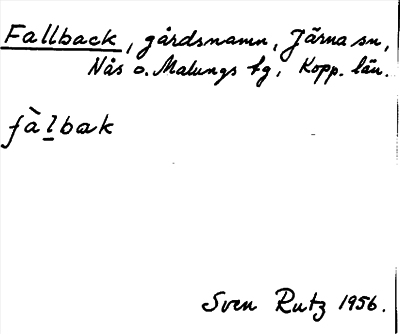 Fallback, gårdsnamn, Järna sn,
Nås o. Malungs tg, Kopp. län.
fàlbak
Sven Rutz 1956.